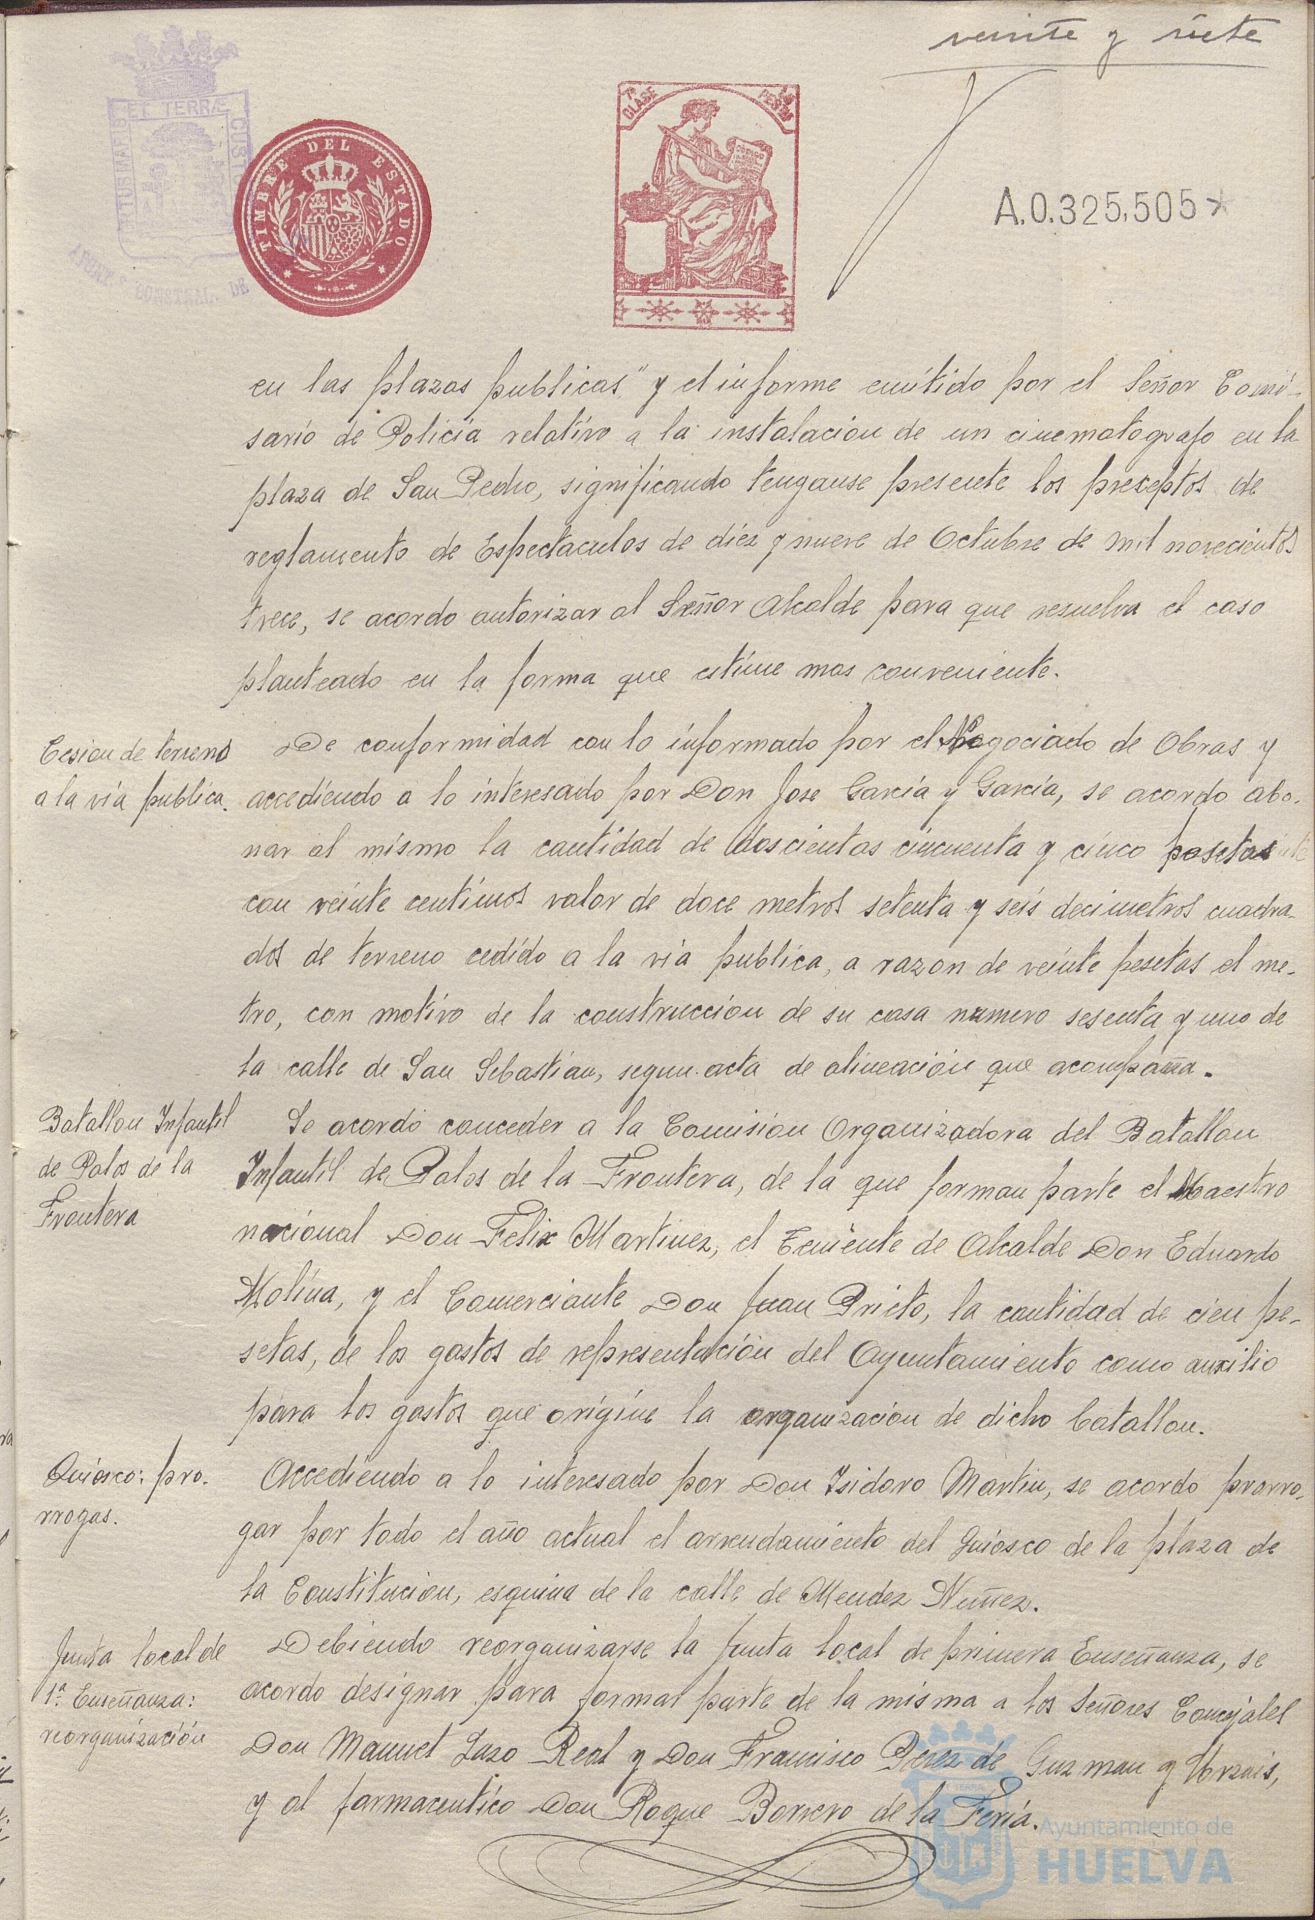 veinte y siete
PORTUS MARIS ET TERRÆ CUSTODIA
AYUNT. CONSTNAL. DE
TIMBRE DEL ESTADO
7ª CLASE
PESETAS
CODIGO
A.0.325,505*
en las plazas publicas" y el informe emitido por el Señor Comi-
sario de Policía relativo a la instalacion de un cinematografo en la
plaza de San Pedro, significando tengause presente los preceptos de
reglamento de Espectaculos de diez y nueve de Octubre de mil novecientos
trece, se acordo autorizar al Señor Alcalde para que resuelva el caso
planteado en la forma que estime mas conveniente.
Cesion de terreno
a la via publica.
De conformidad con lo informado por el Negociado de Obras y
accediendo a lo interesado por Don Jose García y García, se acordo abo-
nar al mismo la cantidad de doscientas cincuenta y cinco pesetas
con veinte centimos valor de doce metros setenta y seis decimetros cuadra-
dos de terreno cedido a la via publica, a razon de veinte pesetas el me-
tro, con motivo de la construccion de su casa numero sesenta y uno de
la calle de San Sebastian, segun acta de alineación que acompaña.
Batallon Infantil
de Palos de la
Frontera
Se acordó conceder a la Comisión Organizadora del Batallon
Infantil de Palos de la Frontera, de la que forman parte el Maestro
nacional Don Felix Martinez, el Teniente de Alcalde Don Eduardo
Molina, y el Comerciante Don Juan Prieto, la cantidad de cien pe-
setas, de los gastos de representación del Ayuntamiento como auxilio
para los gastos que origine la organizacion de dicho batallon.
Quiosco: pro-
rrogas.
Accediendo a lo interesado por Don Isidoro Martin, se acordo prorro-
gar por todo el año actual el arrendamiento del quiosco de la plaza de
la Constitucion, esquina de la calle de Mendez Nuñez.
Junta local de
1ª Enseñanza:
reorganización
Debiendo reorganizarse la Junta local de primera Enseñanza, se
acordo designar para formar parte de la misma a los Señores Concejales
Don Manuel Lazo Real y Don Francisco Perez de Guzman y Urzais,
y al farmaceutico Don Roque Borrero de la Feria.
Ayuntamiento de
HUELVA